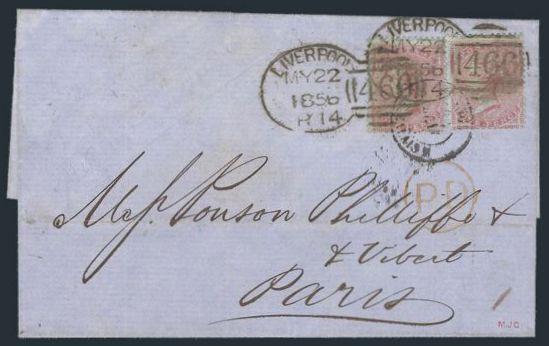 LIVERPOOL
MY 22
1856
R 14
466
LIVERPOOL
MY 22
56
14
466
PD
Mess Ponson Philliffe &
& Vibert
Paris
MJC